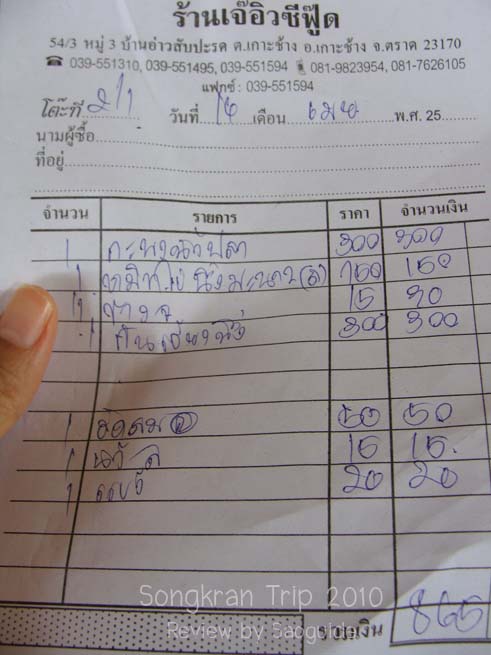 ร้านเจ๊อิวซีฟู๊ด
54/3 หมู่ 3 บ้านอ่าวสับปะรด ต.เกาะช้าง อ.เกาะช้าง จ.ตราด 23170
☎ 039-551310, 039-551495, 039-551594 081-9823954, 081-7626105
แฟกซ์ : 039-551594
โต๊ะที่ 2/1 วันที่ 14 เดือน เมษ พ.ศ. 25
นามผู้ซื้อ
ที่อยู่
จำนวน รายการ ราคา จำนวนเงิน
1 กะพงน้ำปลา 300 300
1 นึ่งมะนาว 150 150
15 30
1 300 300
1 50 50
1 15 15.
1 20 20
รวมเงิน 865
Songkran Trip 2010
Review by Saogolda